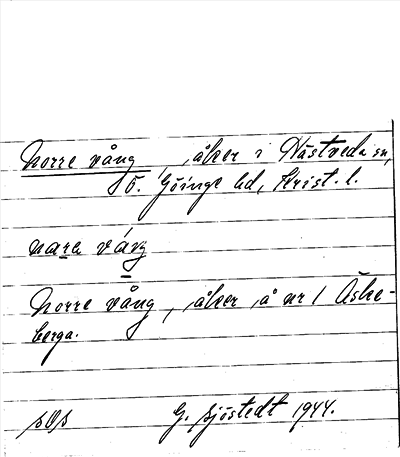 Norre vång, åker i Hästveda sn,
Ö. Göinge hd, Krist. l.
nara váng
Norre vång, åker å nr 1 Äske-
berga.
G. Sjöstedt 1944.